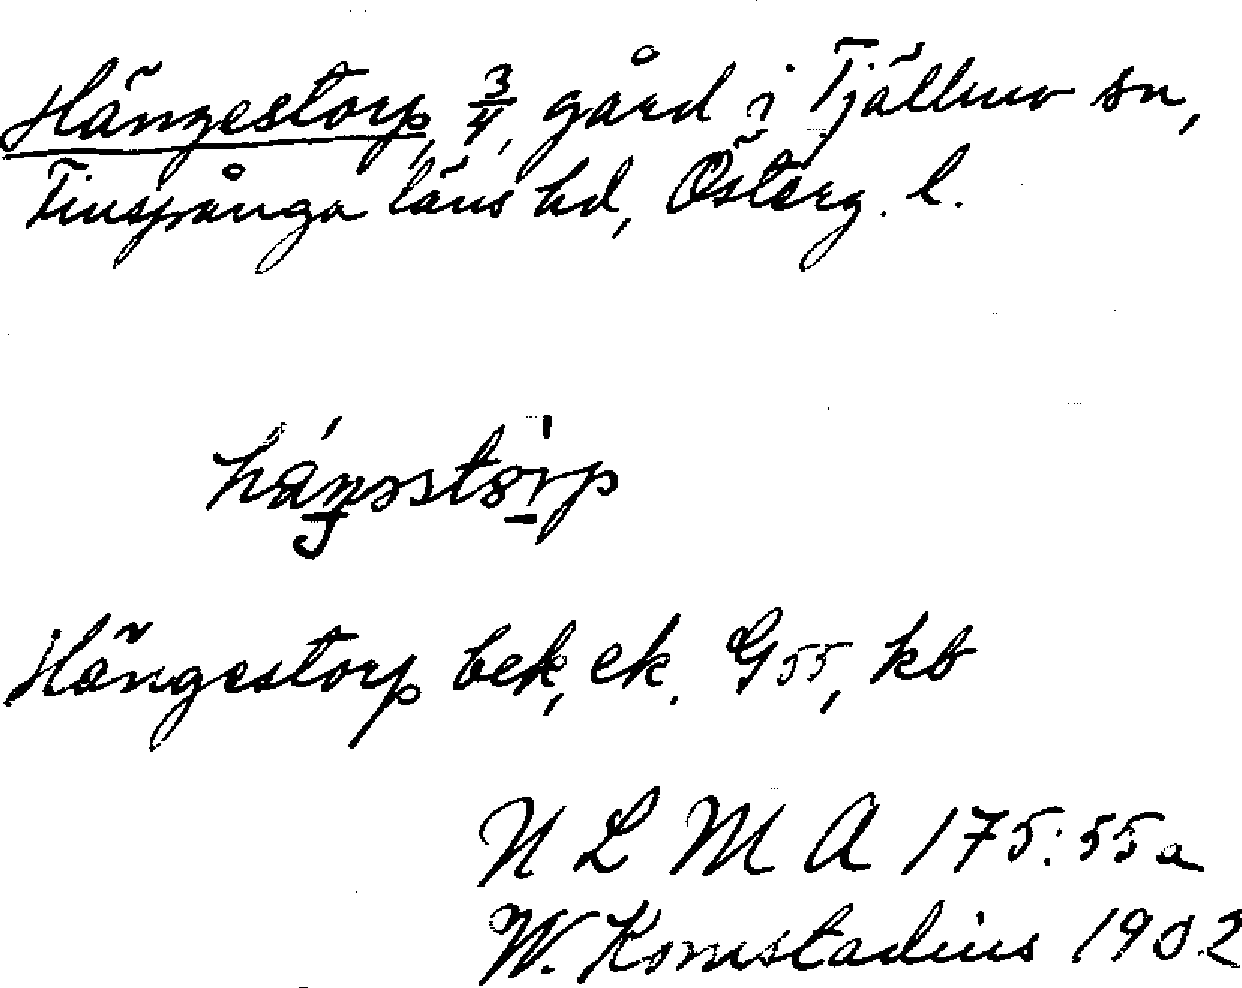 Hängestorp, 3/4, gård i Tjällmo sn,
Finspånga läns hd, Österg. l.
Hängestorp bek, ek. G 55, kb
N L M A 175:55a
W. Komstadius 1902